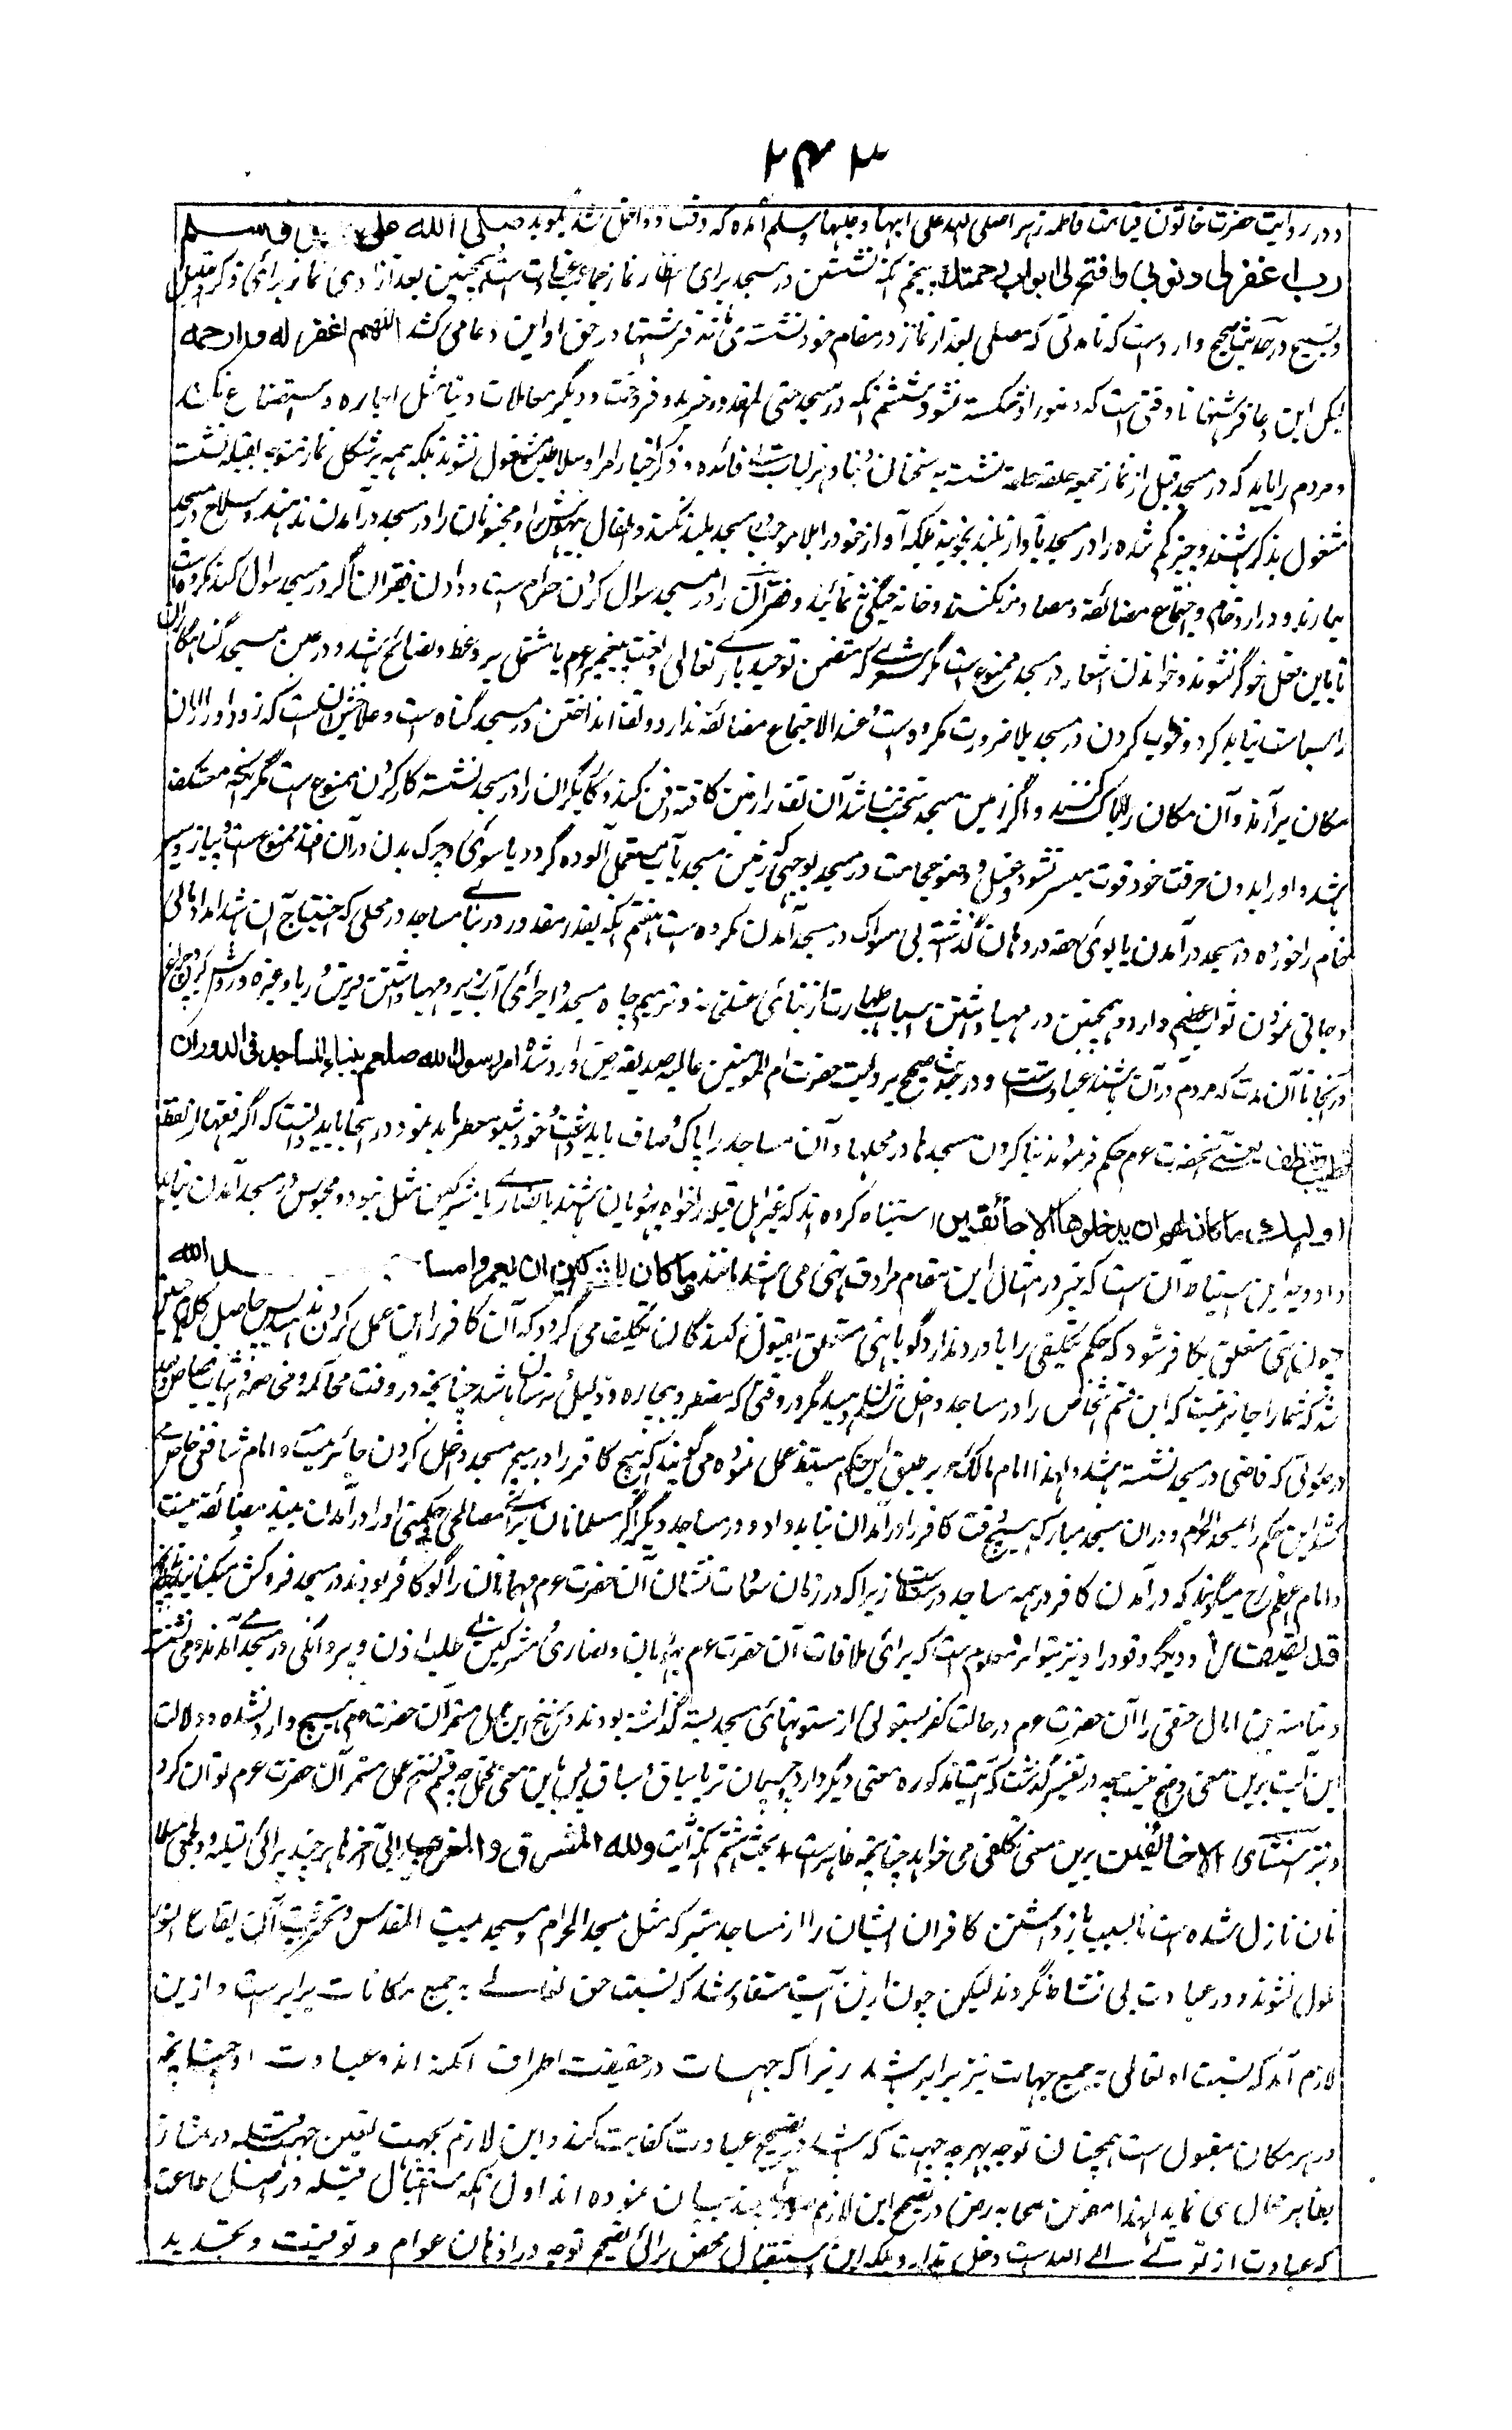 ۴۳۴
و در روایت حضرت خاتون قیامت فاطمه زهرا صلی الله علی ابیها و علیها وسلم آمده که وقت دخول بگوید صلی الله علی وسلم
رب اغفرلی ذنوبی وافتح لی ابواب رحمتک پنجم آنکه نشستن در مسجد برای انتظار نماز جماعت عبادت است همچنین بعد از ادای نماز برای ذکر
و تسبیح در حدیث صحیح وارد است که تا مدتی که مصلی بعد از نماز در مقام خود نشسته می ماند فرشتها در حق او این دعا می کنند اللهم اغفر له وارحمه
لیکن این دعا فرشتها تا وقتی است که وضو را او شکسته نشود ششم آنکه در مسجد حتی المقدور خرید و فروخت و دیگر معاملات دنیا مثل اجاره و نکنند
و مردم را باید که در مسجد قبل از نماز جمعه حلقه حلقه نشسته به سخنان دنیا و بی فائده و ذکر اخبار امرا و سلاطین مشغول نشوند بلکه همه بر شکل نماز متوجه بقبله نشسته
مشغول بذکر باشند و چیز گم شده را در مسجد بآواز بلند نجویند بلکه آواز خود را بلا موجب در مسجد بلند نکنند و اطفال و مجنونان را در مسجد در آمدن ندهند و سلاح در مسجد
نیارند و در ازدحام و اجتماع مضائقه و نکنند و خانه جنگی ننمایند و را در مسجد سوال کردن حرام است و دادن فقیران اگر در مسجد سوال کنند مکروه است
تا باین فعل خوگر نشوند و خواندن اشعار در مسجد ممنوع است مگر شعری که متضمن توحید باری تعالی و نعت پیغمبر عم یا مشتمل بر وعظ و نصائح باشد و در عین مسجد گناهگاران
را سیاست نباید کرد و خواب کردن در مسجد بلا ضرورت مکروه است و عند الاحتیاج مضائقه ندارد و تف انداختن در مسجد گناه است و علاجش آن است که زود او را از آن
مکان برآرند و آن مکان را پاک کنند و اگر زمین مسجد آن تف را زمین کافته دفن کنند و کاریگران را در مسجد نشسته کار کردن ممنوع است مگر آنکه معتکف
باشد و او را بدون حرفت خود قوت میسر نشود و غسل و وضو در مسجد بوجهی که زمین مسجد بآب مستعمل آلوده گردد یا موی و چرک بدن در آن افتد ممنوع است و پیاز و سیر
خام را خورده در مسجد در آمدن یا بوی حقه در دهان گذشته بی مسواک در مسجد آمدن مکروه است هفتم آنکه بقدر مقدور در بنای مساجد در محلی که احتیاج آن باشد امداد مالی
و جانی نمودن ثواب عظیم دارد و همچنین در مهیا داشتن اسباب طهارت از بنای غسلخانه و ترمیم چاه مسجد و اجرای آب و مهیا داشتن فرش و بوریا و غیره و روشن کردن چراغ
در آنجا تا آن مدت که مردم در آن باشند عبادت است و در حدیث صحیح بروایت حضرت ام المومنین عائشه صدیقه رض وارد شده امر رسول الله صلعم ببناء المساجد فی الدور و ان
تطیب و تنظف یعنی آنحضرت عم حکم فرمودند ببنا کردن مسجد ها در محلها و آن مساجد را پاک و صاف باید داشت و خوشبو معطر باید نمود در اینجا باید دانست که اکثر فقها از لفظ
اولئک ما کان لهم ان یدخلوها الا خائفین استنباط کرده اند که غیر اهل قبله را خواه یهودیان باشند یا نصاری یا مشرکین مثل هنود و مجوس در مسجد آمدن نباید
داد و وجه این استنباط آن است که خبر در مثال این مقام مرادف نهی می باشد مانند وما کان للمشرکین ان یعمروا مساجد الله
چون نهی متعلق بکافر شود که حکم تکلیفی را باور ندارد گویا نهی متعلق بقبول کنندگان تکلیف می گردد که آن کافر را این عمل کردن ندهند پس حاصل کلام چنین
شد که شما را جائز نیست که این قسم اشخاص را در مساجد داخل شدن بدهید مگر در وقتی که مضطر و بیچاره و ذلیل و ترسان باشد چنانچه در وقت محاکمه و مخاصمه
در صورتی که قاضی در مسجد نشسته باشد و لهذا امام مالک رح بر طبق این حکم عمل نموده می گویند که هیچ کافر را در هیچ مسجد داخل کردن جائز نیست و امام شافعی خاص می
کنند این حکم را بمسجد الحرام و در آن مسجد مبارک هیچ وقت کافر را در آمدن نباید داد و در مساجد دیگر اگر مسلمانان برای مصالحی و حکمتی او را در آمدن بدهند مضائقه نیست
و امام اعظم رح میگویند که در آمدن کافر در همه مساجد درست است زیرا که در زمان سعادت نشان آن حضرت عم مهمانان را گو کافر بودند در مسجد فروکش میکنانیدند چنانچه
و دیگر وفود را و نیز بتواتر معلوم است که برای ملاقات آن حضرت عم یهودیان و نصاری و مشرکین بی طلب اذن و پروانگی در مسجد می آمدند و می نشستند
و ثمامه بن اثال حنفی را آن حضرت عم در حالت کفر بستونی از ستونهای مسجد بسته گذاشته بودند و نسخ این عمل مستمر آن حضرت عم هیچ وارد نشده و دلالت
این آیت برین معنی واضح نیست چه در تفسیر گذشت که آیت مذکوره معنی دیگر دارد چسپان تر با سیاق و سباق پس باین معنی محتمل چه قسم نسخ عمل مستمر آن حضرت عم توان کرد
و نیز استثنای الا خائفین برین معنی تکلفی می خواهد چنانچه ظاهر است + بحث هشتم آنکه آیت ولله المشرق والمغرب الی آخرها هر چند برای تسلیه و دلجوئی مسلما
نان نازل شده است تا بسبب بازداشتن کافران ایشان را از مساجد متبرکه مثل مسجد الحرام و مسجد بیت المقدس و تخریب آن بقاع
ملول نشوند و در عبادت بی نشاط نگردند لیکن چون ازین آیت مستفاد شد که نسبت حق تعالی به جمیع مکانات برابر است و ازین
لازم آمد که نسبت او تعالی به جمیع جهات نیز برابر باشد زیرا که جهات در حقیقت اطراف امکنه اند و عبادت او چنانچه
در هر مکان مقبول است همچنان توجه بهر چه جهت که باشد در تصحیح عبادت کفایت کند و این لازم بجهت تعین جهت قبله در نماز
بظاهر محال می نماید لهذا مفسرین صحابه رض در تصحیح این لازم چند بیان نموده اند اول آنکه استقبال قبله در اصل طاعت
که عبادت از توجه الی الله است دخل ندارد بلکه این استقبال محض برای تصحیح توجه در اذهان عوام و توقیت و تحدید